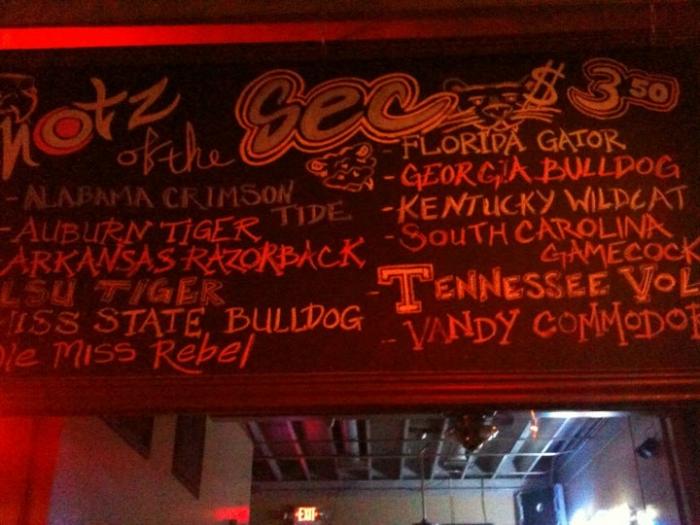 of the Sec $3.50
- ALABAMA CRIMSON
TIDE
- AUBURN TIGER
ARKANSAS RAZORBACK
LSU TIGER
MISS STATE BULLDOG
Ole Miss Rebel
- FLORIDA GATOR
- GEORGIA BULLDOG
- KENTUCKY WILDCAT
- SOUTH CAROLINA
GAMECOCK
- TENNESSEE VOL
- VANDY COMMODOR
EXIT